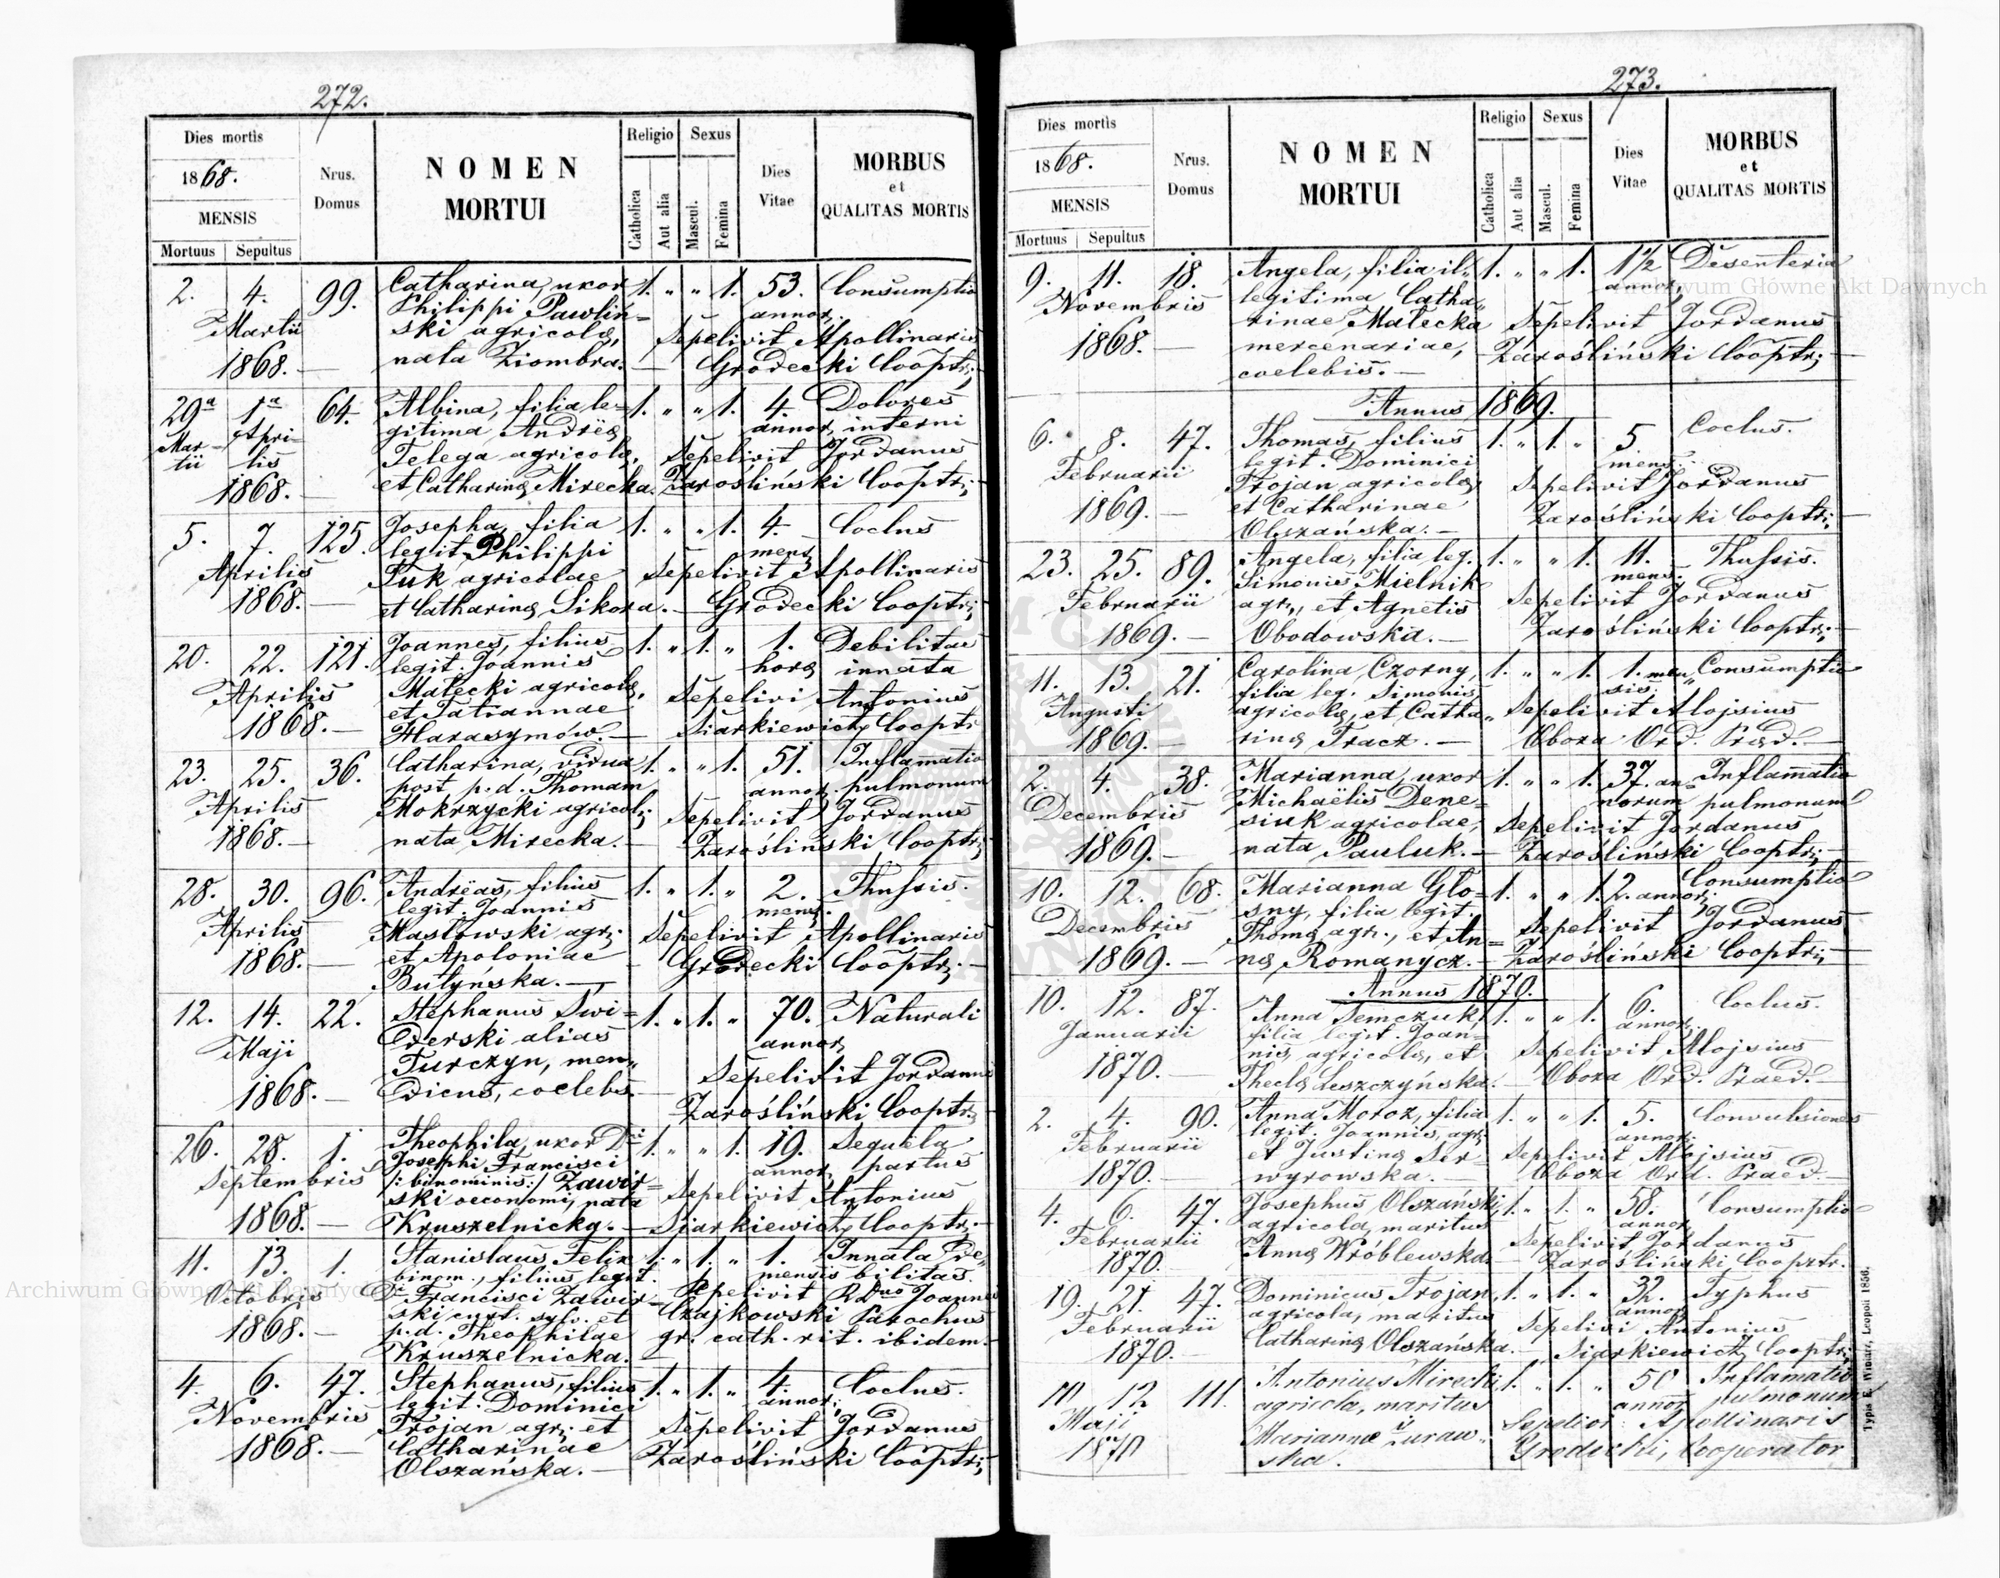 272.
Dies mortis
1868.
MENSIS
Mortuus Sepultus
Nrus. Domus
NOMEN MORTUI
Religio
Catholica
Aut alia
Sexus
Mascul.
Femina
Dies Vitae
MORBUS
et
QUALITAS MORTIS
2. 4. 99. Catharina, uxor 1. " " 1. 53. Consumptio
Martii Philippi Pawliń- annor.
ski agricolae, Sepelivit Apollinaris
1868. — nata Ziombra. — Grodecki Cooptr;
29a 1a 64. Albina, filia le= 1. " " 1. 4. Dolores
Mar- Apri- gitima Andreae annor. interni
tii lis Telega agricolae, Sepelivit Jordanus
1868. — et Catharinae Mirecka. Zarośliński Cooptr;
5. 7. 125. Josepha, filia 1. " " 1. 4. Coclus
legit. Philippi mens.
Aprilis Puk agricolae Sepelivit Apollinaris
1868. — et Catharinae Sikora. — Grodecki Cooptr;
20. 22. 121. Joannes, filius 1. " 1. " 1. Debilitas
legit. Joannis hora innata
Aprilis Małecki agricolae, Sepelivi Antonius
et Tatiannae
1868. — Harasymów. — Siarkiewicz Cooptr
23. 25. 36. Catharina, vidua 1. " " 1. 51. Inflamatio
post p. d. Thomam annor. pulmonum
Aprilis Mokrzycki agricol; Sepelivit Jordanus
1868. — nata Mirecka. — Zarośliński Cooptr;
28. 30. 96. Andreas, filius 1. " 1. " 2. Thussis.
legit. Joannis mens.
Aprilis Masłowski agr; Sepelivit Apollinaris
1868. — et Apoloniae Grodecki Cooptr; —
Butyńska. —
12. 14. 22. Stephanus Swi= 1. " 1. " 70. Naturali
Maji derski alias annor.
Turczyn, men= Sepelivit Jordanus
1868. — dicus, coelebs. Zarośliński Cooptr.
26. 28. 1. Theophila, uxor Di 1. " " 1. 19. Sequela
Josephi Francisci annor. partus
Septembris /: binominis :/ Zawir=
ski oeconomi, nata Sepelivit Antonius
1868. — Kruszelnicka. — Siarkiewicz Cooptr; —
11. 13. 1. Stanislaus Felix 1. " 1. " 1. Innata De=
binom., filius legit. mensis bilitas.
Octobris Di Francisci Zawir= Sepelivit Rdus Joannes
1868. — Czajkowski Parochus
p. d. Theophilae gr. cath. rit. ibidem. —
Kruszelnicka. —
4. 6. 47. Stephanus, filius 1. " 1. " 4. Coclus.
legit. Dominici annor;
Novembris Trojan agr; et Sepelivit Jordanus
1868. — Catharinae Zarośliński Cooptr;
Olszańska. —
273.
Dies mortis
1868.
MENSIS
Mortuus Sepultus
Nrus. Domus
NOMEN MORTUI
Religio
Catholica
Aut alia
Sexus
Mascul.
Femina
Dies Vitae
MORBUS
et
QUALITAS MORTIS
9. 11. 18. Angela, filia il= 1. " " 1. 1½ Desenteria
Novembris legitima Catha= annor.
rinae Małecka Sepelivit Jordanus
1868. — mercenariae, Zarośliński Cooptr; —
coelebis. —
Annus 1869.
6. 8. 47. Thomas, filius 1. " 1. " 5. Coclus.
legit. Dominici mens.
Februarii Trojan agricolae Sepelivit Jordanus
1869. — et Catharinae Zarośliński Cooptr; —
Olszańska. —
23. 25. 89. Angela, filia leg. 1. " " 1. 11. Thussis.
Simonis Mielnik mens.
Februarii agr., et Agnetis Sepelivit Jordanus
1869. — Obodowska. — Zarośliński Cooptr; —
11. 13. 21. Carolina Czorny, 1. " " 1. 1. men= Consumptio
filia leg. Simonis sis.
Augusti agricolae, et Catha= Sepelivit Alojsius
1869. — rinae Tracz. — Oboza Ord. Praed. —
2. 4. 38. Marianna, uxor 1. " " 1. 37. an= Inflamatio
Michaëlis Dene= norum pulmonum
Decembris siuk agricolae, Sepelivit Jordanus
1869. — nata Pauluk. — Zarośliński Cooptr; —
10. 12. 68. Marianna Gło= 1. " " 1. 2. annor; Consumptio
sny, filia legit.
Decembris Thomae agr., et An= Sepelivit Jordanus
1869. — nae Romanycz. — Zarośliński Cooptr; —
Annus 1870.
10. 12. 87. Anna Semczuk, 1. " " 1. 6. Coclus.
Januarii filia legit. Joan= annor.
nis, agricolae, et Sepelivit Alojsius
1870. — Theclae Leszczyńska. — Oboza Ord. Praed. —
2. 4. 90. Anna Moroz, filia 1. " " 1. 5. Convulsiones
legit. Joannis, agr; annor.
Februarii et Justinae Ser= Sepelivit Alojsius
1870. — wyrowska. — Oboza Ord. Praed. —
4. 6. 47. Josephus Olszański, 1. " 1. " 58. Consumptio
agricola, maritus annor.
Februarii Sepelivit Jordanus
1870. Annae Wróblewska. — Zarośliński Cooprtr.
19. 21. 47. Dominicus Trojan, 1. " 1. " 32. Typhus
agricola, maritus annor.
Februarii Sepelivi Antonius
1870. — Catharinae Olszańska. — Siarkiewicz Cooptr;
10 12 111. Antonius Mirecki, 1. " 1. " 50 Inflamatio
agricola, maritus annor. pulmonum
Maji Sepelivi Apollinaris
1870 Mariannae Żuraw= Grodecki, Cooperator
ska.
Typis E. Winiarz, Leopoli 1856.
Archiwum Główne Akt Dawnych
Archiwum Główne Akt Dawnych